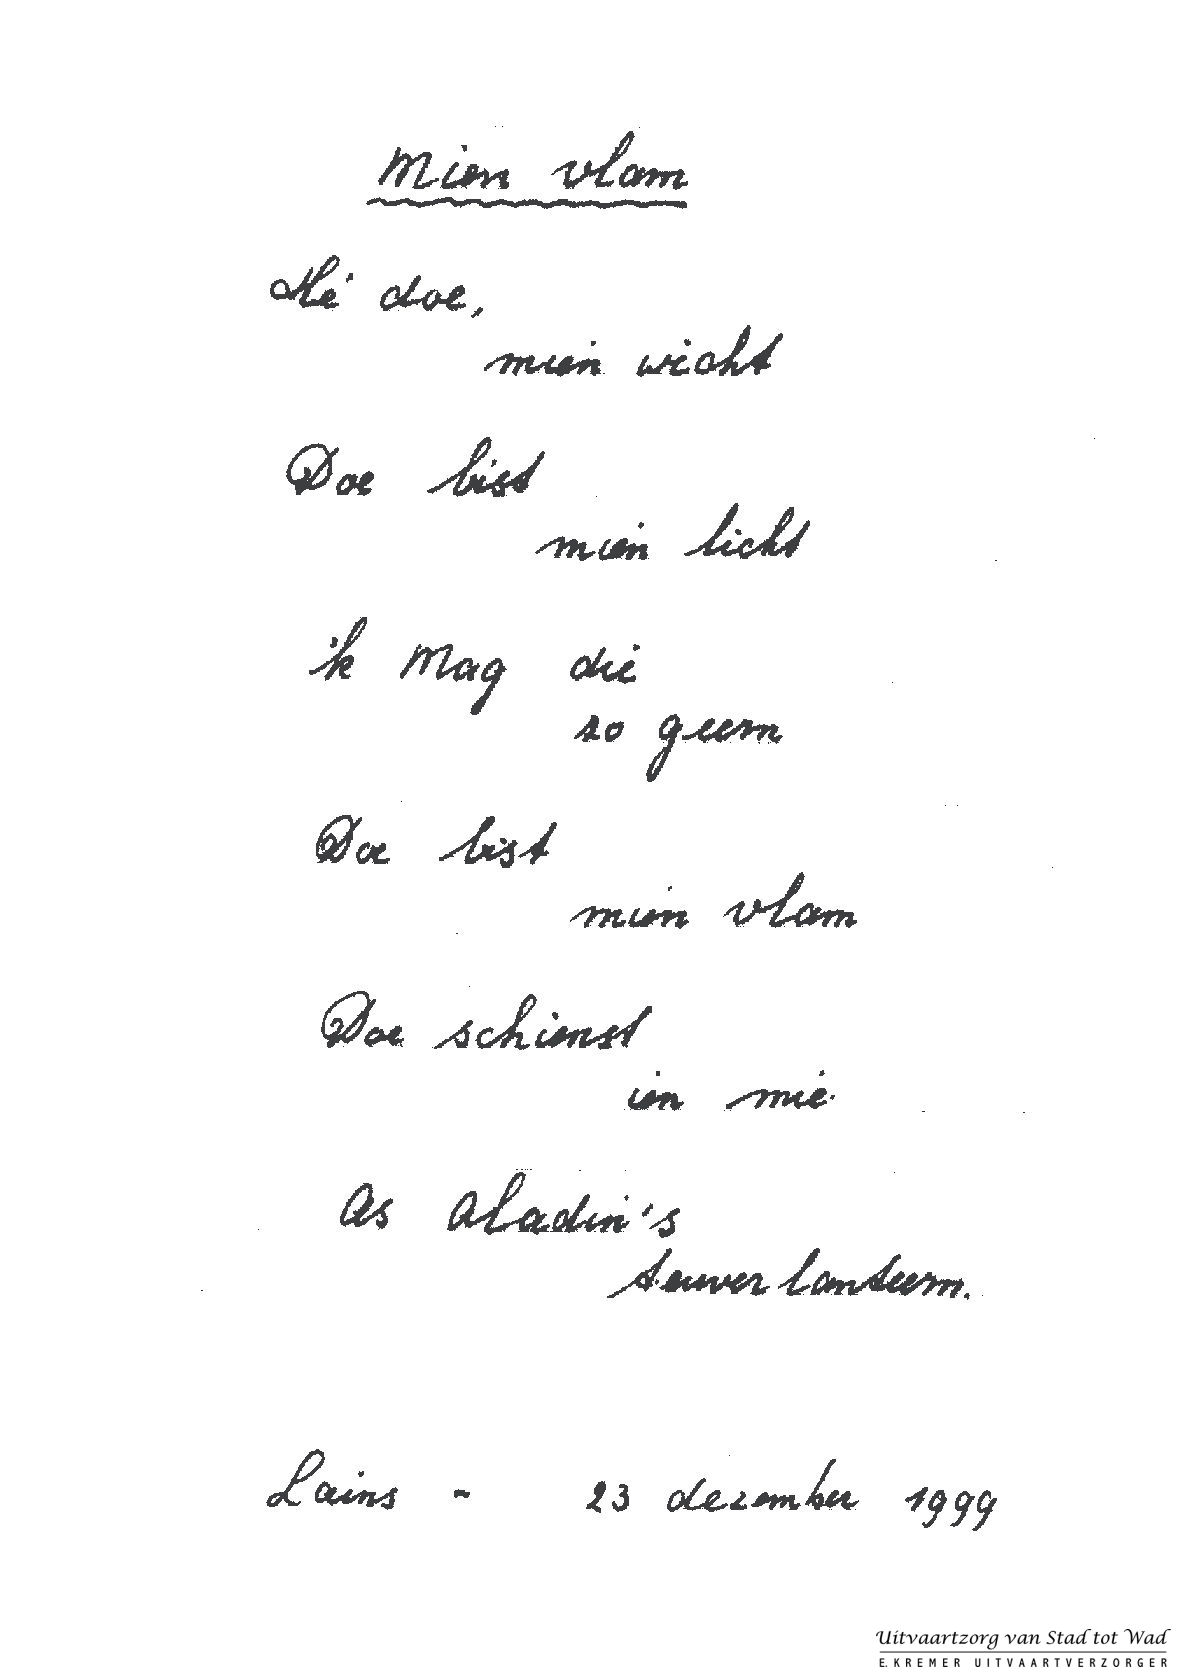 Mien vlam
Hé doe,
mien wicht
Doe bist
mien licht
ik mag die
zo geern
Doe bist
mien vlam
Doe schienst
ien mie.
As Aladin's
teuverlanteern.
Lains - 23 dezember 1999
Uitvaartzorg van Stad tot Wad
E. KREMER UITVAARTVERZORGER